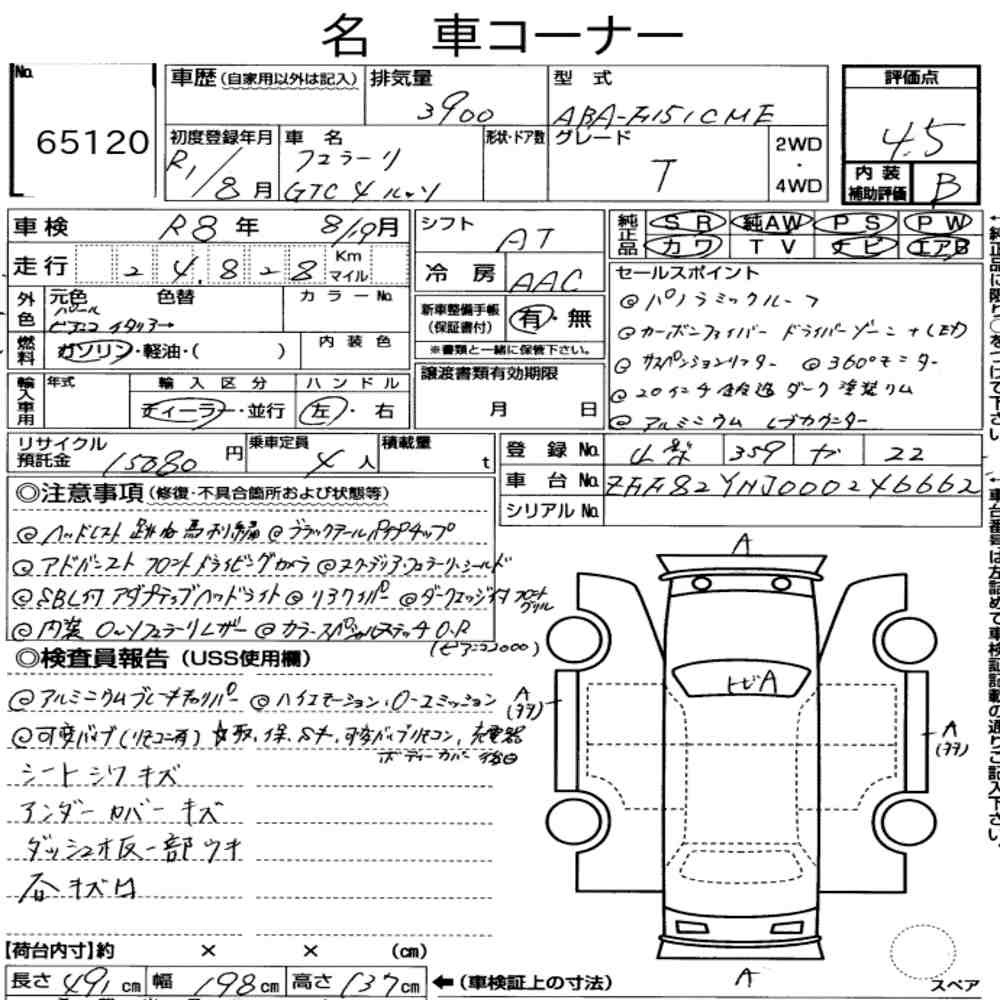 名 車コーナー
No.
65120
車歴(自家用以外は記入)
排気量
3900
型 式
ABA-F151CME
評価点
4.5
初度登録年月
R1/8月
車 名
フェラーリ
GTC4ルッソ
形状・ドア数
グレード
T
2WD
・
4WD
内装
補助評価
B
車検
R8年 8/19月
走行
2 4.8 2 8
Km
マイル
シフト
AT
冷 房
AAC
純正品
SR 純AW PS PW
カワ TV ナビ エアB
外色
元色 色替
パール
ビアンコ イタリアー
カラーNo.
燃料
ガソリン・軽油・( )
内 装 色
新車整備手帳
(保証書付)
有・無
※書類と一緒に保管下さい。
セールスポイント
◎パノラミックルーフ
◎カーボンファイバー ドライバーゾーン+LED
◎サスペンションリフター ◎360°モニター
◎20インチ鍛造ダーク塗装リム
◎アルミニウム レブカウンター
輸入車用
年式
輸 入 区 分
ディーラー・並行
ハ ン ド ル
左・右
譲渡書類有効期限
月 日
リサイクル
預託金
15080円
乗車定員
4人
積載量
t
登 録 No.
山梨 359 22
車 台 No.
ZFF82YHJ000246662
シリアルNo.
◎注意事項(修復・不具合箇所および状態等)
◎ヘッドレスト跳ね馬刺繍 ◎ブラックテールパイプチップ
◎アドバンスト フロントドライビングカメラ ◎スクーデリア・フェラーリ・シールド
◎SBL付 アダプティブヘッドライト ◎リヤワイパー ◎ダークエッジ付フロント
グリル
◎内装 フェラーリレザー ◎カラースペシャルステッチ O.R
(ビアンコ2000)
◎検査員報告(USS使用欄)
◎アルミニウムブレーキキャリパー ◎ハイエモーション・ローエミッション
◎可変バルブ(リモコン有) 取,保,Sキー,可変バルブリモコン,充電器
ボディーカバー後日
シートシワキズ
アンダーカバーキズ
ダッシュ板一部ウキ
各キズ凹
A
トビA
A
A
A
【荷台内寸】約 × × (cm)
長さ 491cm 幅 198cm 高さ 137cm ←(車検証上の寸法)
スペア
←純正品に限り○をつけて下さい。
←車台番号は左詰めで車検証記載の通りご記入下さい。